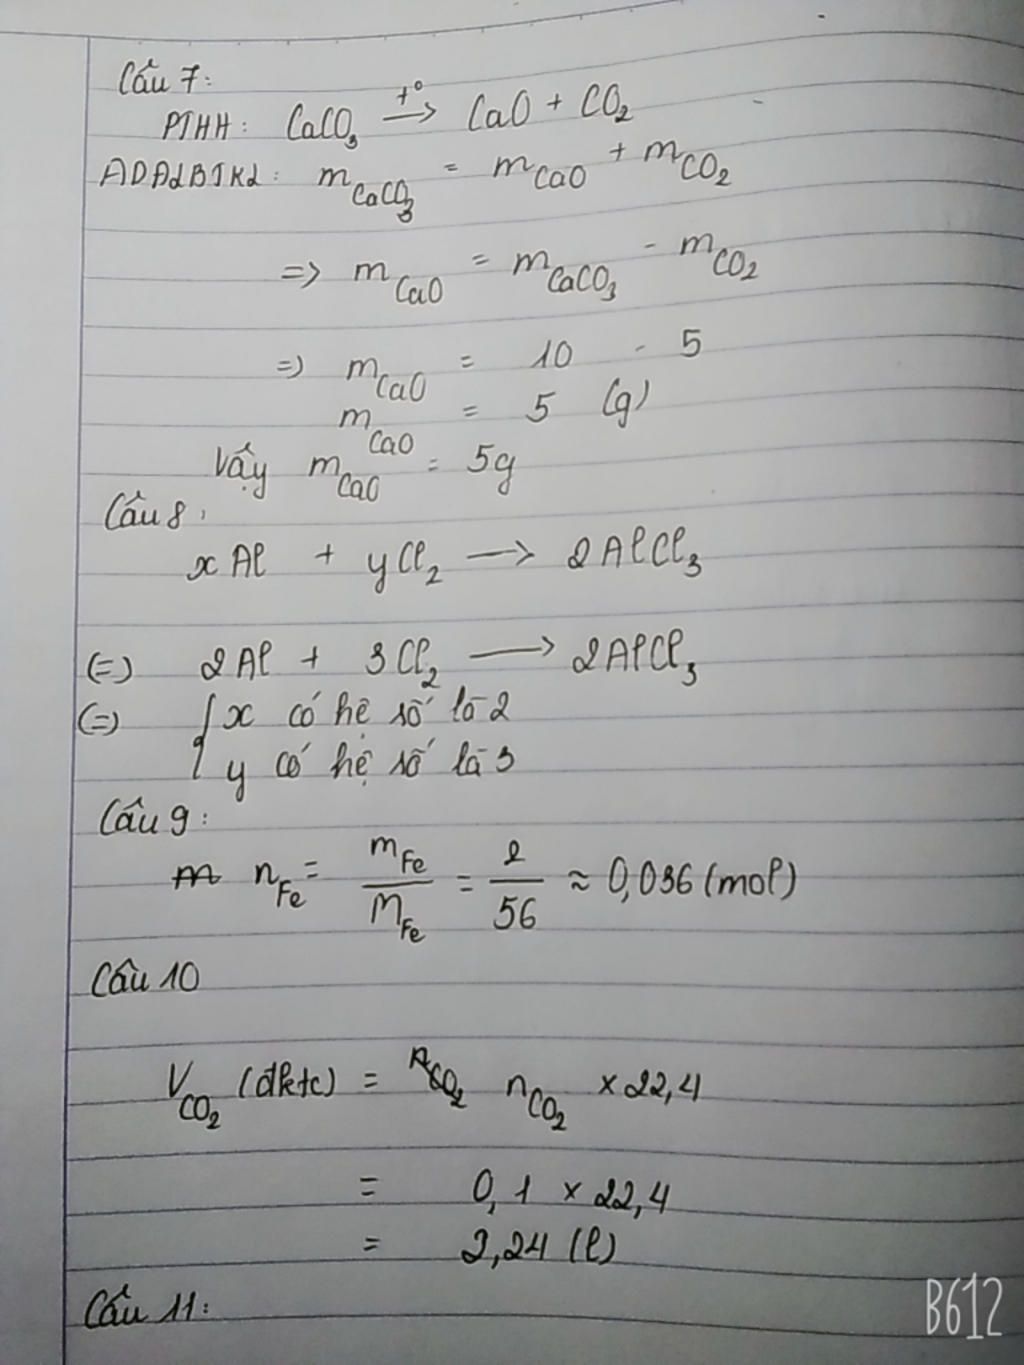 Câu 7:
PTHH: CaCO3 t°→ CaO + CO2
ADĐLBTKL: mCaCO3 = mCaO + mCO2
=> mCaO = mCaCO3 - mCO2
=> mCaO = 10 - 5
mCaO = 5 (g)
Vậy mCaO = 5g
Câu 8:
xAl + yCl2 → 2AlCl3
(=) 2Al + 3Cl2 → 2AlCl3
(=) { x có hệ số là 2
y có hệ số là 3
Câu 9:
m nFe = mFe/MFe = 2/56 ≈ 0,036 (mol)
Câu 10
VCO2 (đktc) = nCO2 × 22,4
= 0,1 × 22,4
= 2,24 (l)
Câu 11:
B612